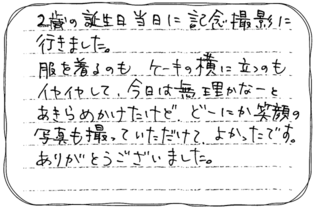 2歳の誕生日当日に記念撮影に
行きました。
服を着るのも、ケーキの横に立つのも
イヤイヤして、今日は無理かなーと
あきらめかけたけど、どーにか笑顔の
写真も撮っていただけて、よかったです。
ありがとうございました。